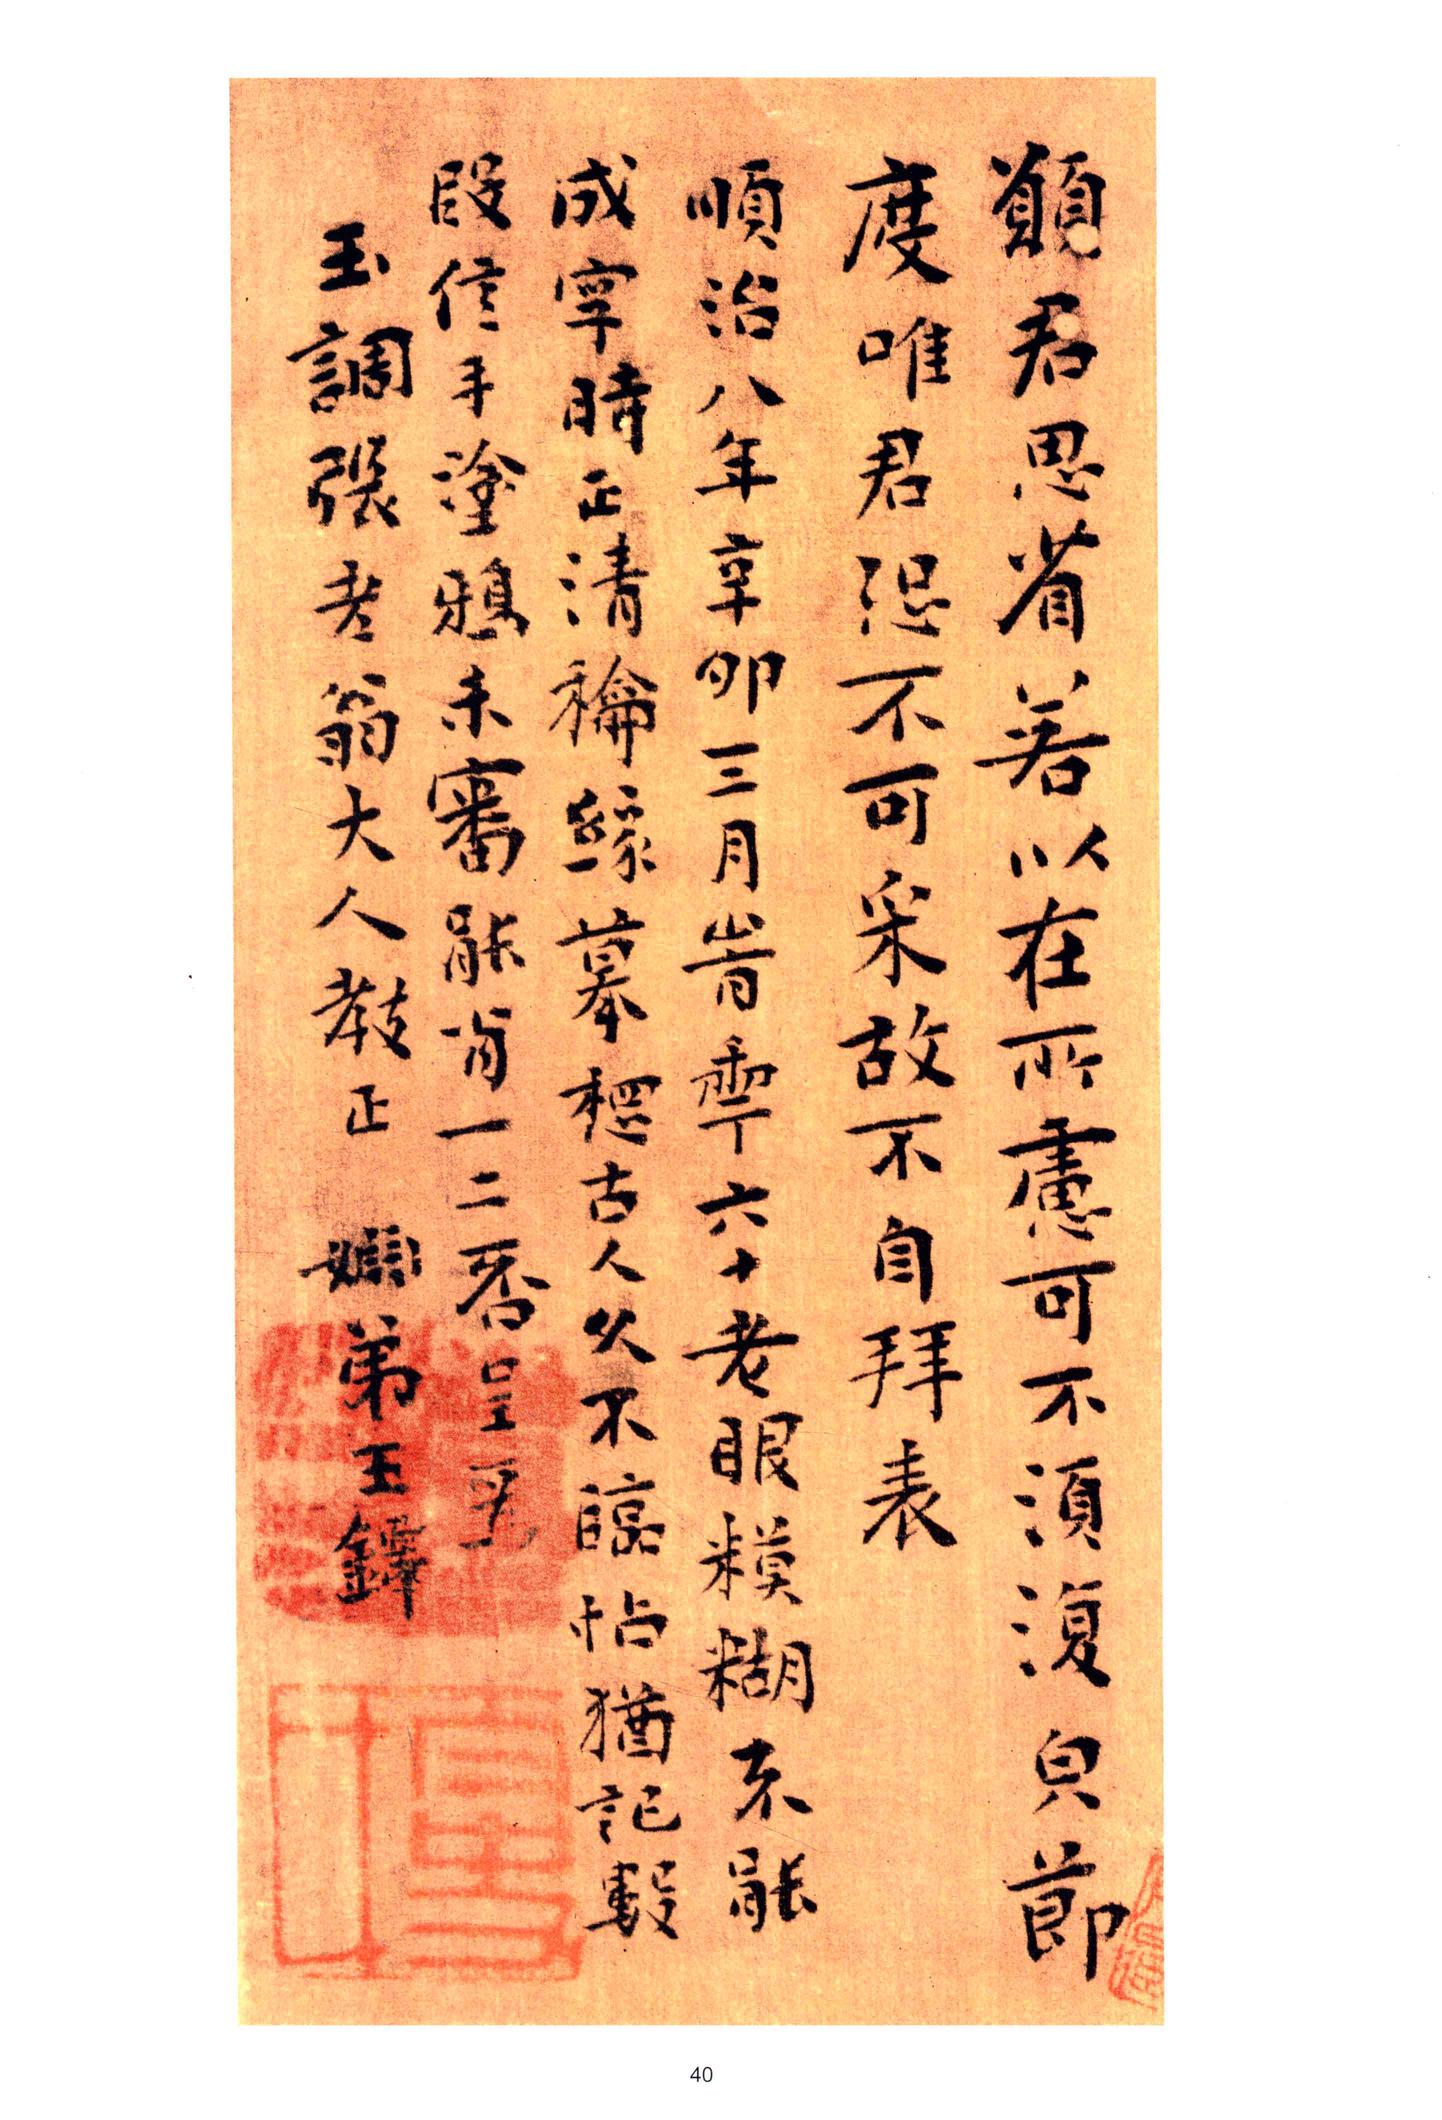 顧君思省若以在所慮可不須復皃節
度唯君恐不可采故不自拜表
順治八年辛卯三月旹年六十老眼糢糊不能
成字時正清龢緣摹穩古人久不臨帖猶記數
段信手塗鴉未審能肖一二否呈
玉調張老翁大人教正 嫻弟王鐸
40